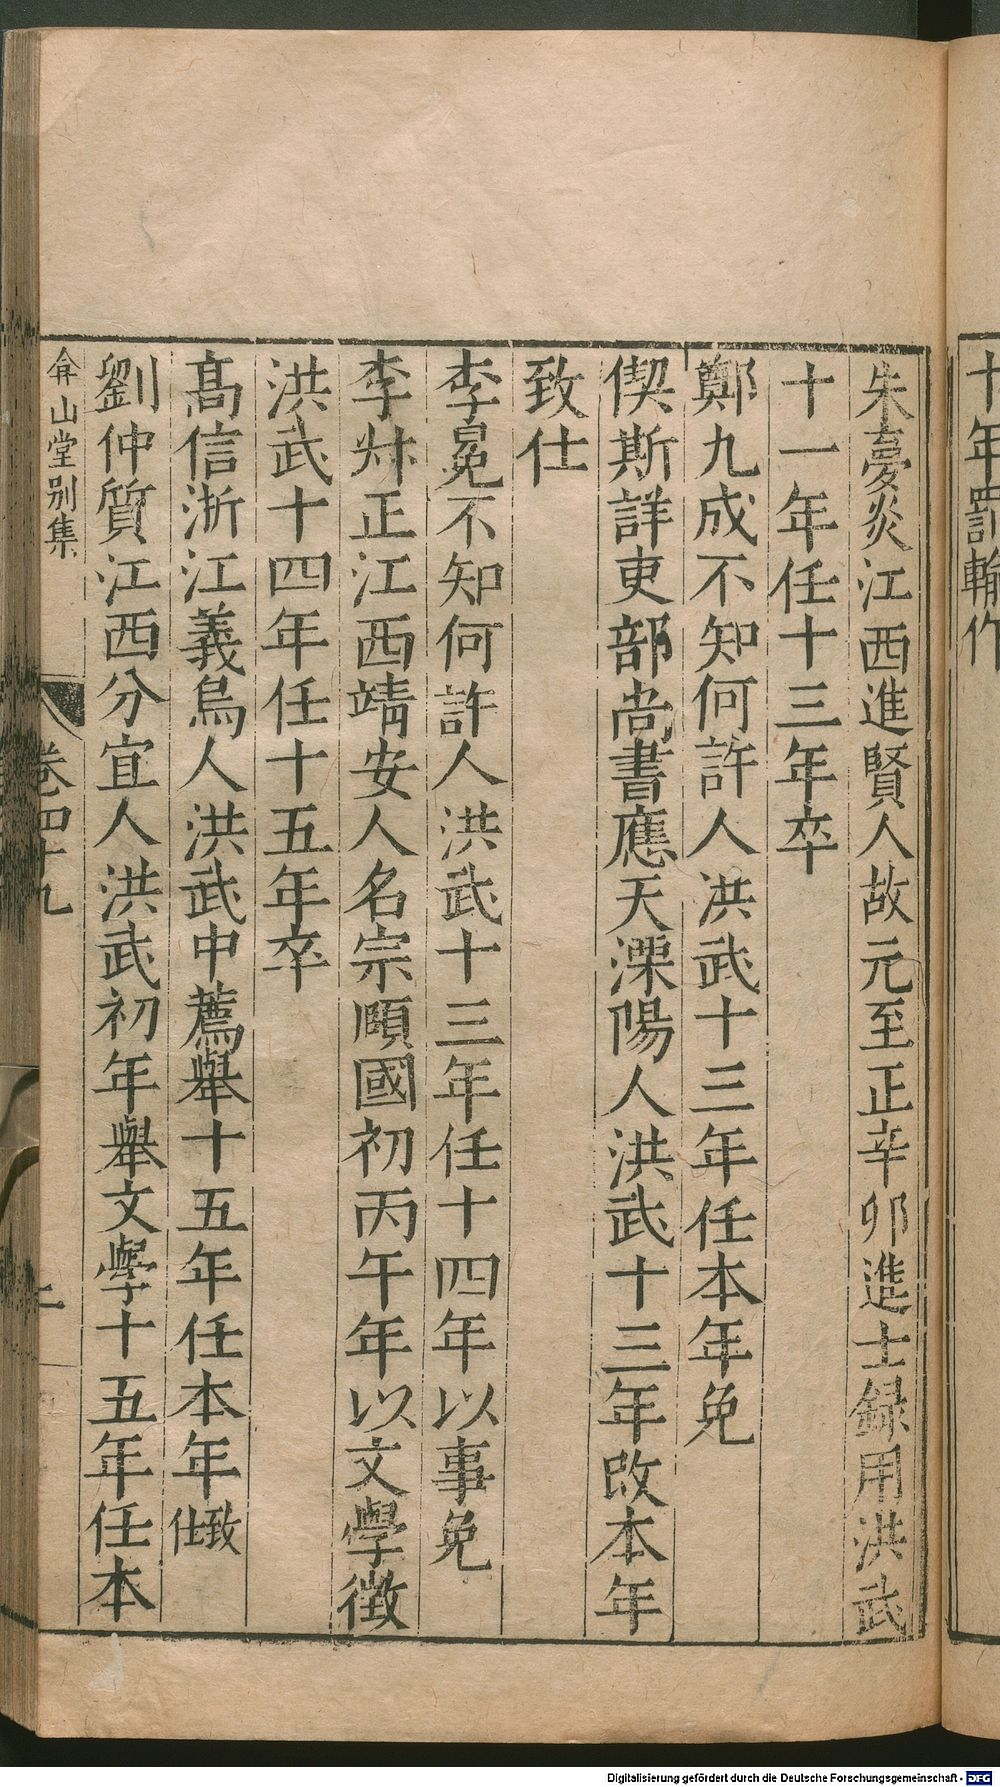 十年罰輸作
朱夢炎江西進賢人故元至正辛卯進士録用洪武
十一年任十三年卒
鄭九成不知何許人洪武十三年任本年免
偰斯詳吏部尚書應天溧陽人洪武十三年改本年
致仕
李冕不知何許人洪武十三年任十四年以事免
李叔正江西靖安人名宗頤國初丙午年以文學徴
洪武十四年任十五年卒
髙信浙江義烏人洪武中薦舉十五年任本年致仕
劉仲質江西分宜人洪武初年舉文學十五年任本
弇山堂别集
卷四十九
Digitalisierung gefördert durch die Deutsche Forschungsgemeinschaft - DFG